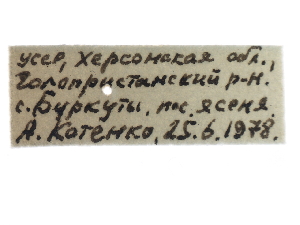 УССР, Херсонская обл.,
Голопристанский р-н.
с. Буркуты, пос. ясеня.
А. Котенко, 25.6.1978.